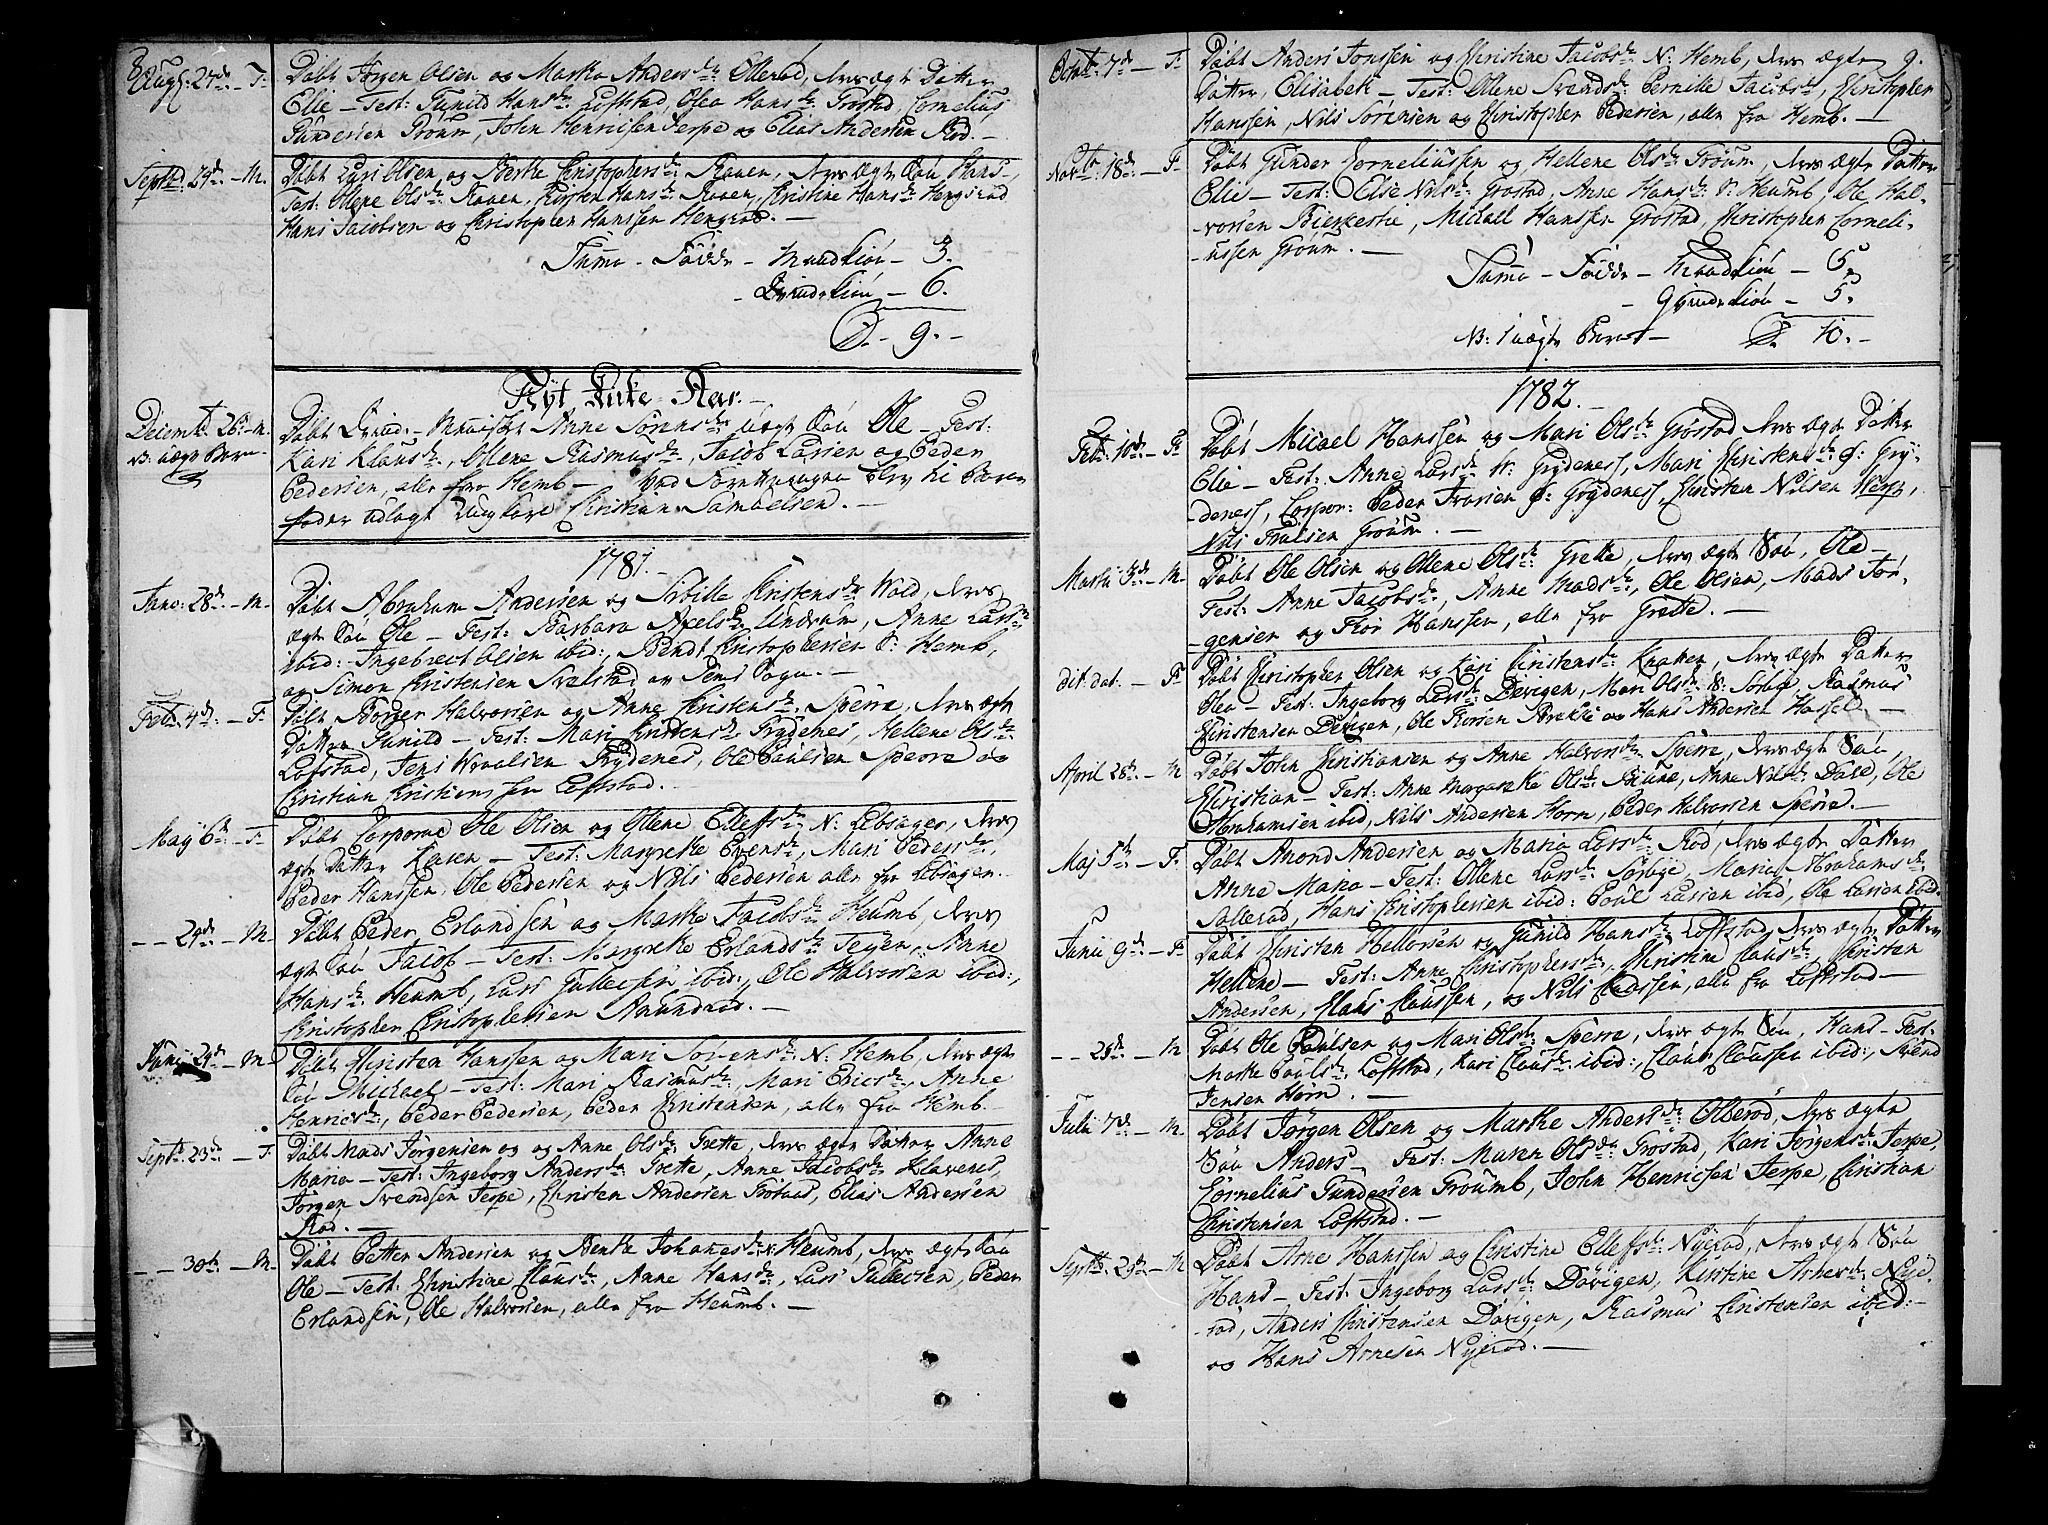 8.
Aug: 27de – F. Döbt Jörgen Olsen og Marthe Andersdr: Ollerød, deres ægte Datter
Elie – Test: Gunild Hansdr: Løftstad, Olea Hansdr: Grostad, Cornelius
Gundersen Gröum, John Henricsen Jerpe og Elias Andersen Rød. –
Septb: 24de – M. Döbt Lars Olsen og Berthe Christophersdr: Raaen, deres ægte Søn Hans –
Test: Ollene Olsdr: Raaen, Kirsten Hansdr: Raaen, Christine Hansdr: Hengsrød
Hans Jacobsen og Christopher Hanssen Hengsrød. –
Suma – Födde – Mandkiön – 3.
– Qvindekiön – 6.
S. – 9. –
Nyt Kirke-Aar. –
Decemb: 26de – M. Döbt Anne uægte Søn Ole – Test:
NB: uægte Barn – Kari Klausdr:, Ollene Rasmusdr:, Jacob Larsen og Peder
Pedersen, alle fra Hemb – Ved blev til Barne
fader udlagt Ungkarl Christian Samuelsen. –
1781.
Janv: 28de – M. Döbt Abraham Andersen og Sibille Christensdr: Wold, deres
ægte Søn Ole – Test: Barbara Axelsdr: Undrum, Anne Larsdr:
ibid: Ingebrect Olsen ibid:, Bendt Christophersen S: Hemb,
og Simon Christensen Svelstad av Sems Sogn. –
Feb: 4de – F. Döbt Börger Halvorsen og Anne Christensdr: Sperre, deres ægte
Datter Gunild – Test: Mari Christensdr: Grydenes, Hellene Olsdr:
Løfstad, Jens Wraalsen Grydenes, Ole Paulsen Sperre og
Christian Christiensen Løftstad. –
May 6te – F. Döbt Corporal Ole Olsen og Ollene Ellefsdr: N: Lebsager, deres
ægte Datter Karen – Test: Margrethe Evensdr:, Mari Pedersdr:,
Peder Hanssen, Ole Pedersen og Nils Pedersen alle fra Lebsager. –
– – 24de – M. Döbt Peder Erlandsen og Marthe Jacobsdr: Heumb, deres
ægte Søn Jacob – Test: Margrethe Erlandsdr: Teyen, Anne
Hansdr: Heumb, Lars Gullecsen ibid:, Ole Halvorsen ibid:,
Christopher Christophersen Amundrød. –
Junij 24de – M. Döbt Christen Hanssen og Mari Sörensdr: N: Hemb, deres ægte
Søn Michael – Test: Mari Rasmusdr:, Mari Ericsdr:, Anne
Henricsdr:, Peder Pedersen, Peder Christensen, alle fra Hemb –
Septb: 23de – F. Döbt Mads Jörgensen og og Anne Olsdr: Grette, deres ægte Datter Anne
Maria – Test: Ingeborg Andersdr: Grette, Anne Jacobsdr: Klavenes,
Jörgen Svendsen Jerpe, Christen Andersen Grötnes, Elias Andersen
Rød. –
– – 30te – M. Döbt Petter Andersen og Benthe Johanesdr: N: Heumb, deres ægte Søn
Ole – Test: Christine Clausdr:, Anne Hansdr:, Lars Gullecsen, Peder
Erlandsen, Ole Halvorsen, alle fra Heumb. –
9.
Octob: 7de – F. Döbt Anders Jonssen og Christine Jacobsdr: N: Hemb, deres ægte
Datter, Elisabeth – Test: Ollene Svendsdr: Pernille Jacobsdr:, Christopher
Hanssen, Nils Sörensen og Christopher Pedersen, alle fra Hemb. –
Novb: 18de – F. Döbt Gunder Corneliussen og Hellene Olsdr: Gröum, deres ægte Datter
Elie – Test: Else Nilsdr: Grostad, Anne Hansdr: S: Heumb, Ole Hal-
vorsen Bierkestie, Michael Hanssen Grostad, Christopher Corneli-
-ussen Gröum. –
Suma – Födde – Mandkiön – 5.
– Qvindekiön – 5.
NB: 1 uægte Barn – S. 10. –
1782. –
Feb: 10de – F. Döbt Micael Hanssen og Mari Olsdr: Grostad deres ægte Datter
Elie – Test: Anne Larsdr: N: Grydenes, Mari Christensdr: S: Gry-
denes, Corpor: Peder Iversen S: Grydenes, Christen Nilsen Verge,
Nils Gröum. –
Martii 3de – M. Döbt Ole Olsen og Ollene Olsdr: Grette, deres ægte Søn, Ole –
Test: Anne Jacobsdr:, Anne Madsdr:, Ole Olsen, Mads Jör-
gensen og Thor Hanssen, alle fra Grette. –
dit: dat. – F. Döbt Christopher Olsen og Kari Christensdr: Knatten, deres ægte Datter
Olea – Test: Ingeborg Larsdr: Døvigen, Mari Olsdr: S: Sørbye, Rasmus
Christensen Døvigen, Ole Thorsen Brekke og Hans Andersen Hassel. –
April 28de – M. Döbt John Christiansen og Anne Halvorsdr: Sperre, deres ægte Søn,
Christian – Test: Anne Margarethe Olsdr: Anne Nilsdr: Dale, Ole
Abrahamsen ibid, Nils Andersen Horn, Peder Halvorsen Sperre. –
Maj 5te – F. Döbt Amond Andersen og Maria Larsdr: Rød, deres ægte Datter
Anne Maria – Test: Ollene Larsdr: Sørbye, Maria Abrahamsdr:
Sollerød, Hans Christophersen ibid: Poul Larsen ibid, Ole Larsen ibid.
Junii 9de – F. Döbt Christen Hellorsen og Gunild Hansdr: Løftstad, deres ægte Datter
Hellene – Test: Anne Christophersdr:, Christine Clausdr:, Christen
Andersen, Hans Claussen, og Nils Claussen, alle fra Løftstad –
– – 23de – M Döbt Ole Poulsen og Mari Olsdr: Sperre, deres ægte Søn, Hans – Test:
Marthe Poulsdr: Løftstad, Kari Clausdr: ibid:, Claus Claussen ibid:, Svend
Jensen Hörn. –
Julii 7de – M. Döbt Jörgen Olsen og Marthe Andersdr: Olberød, deres ægte
Søn Anders – Test: Maren Olsdr: Grostad, Kari Jörgensdr: Jerpe,
Cornelius Gundersen Groumb, John Henricsen Jerpe, Christian
Christensen Løftstad. –
Septb: 29de – M Döbt Arne Hanssen og Christine Ellefsdr: Nyerød, deres ægte Søn
Hans – Test: Ingeborg Larsdr: Døvigen, Kirstine Arnesdr: Nye-
-rød, Anders Christensen Døvigen, Rasmus Christensen ibid: –
og Hans Arnesen Nyerød. –